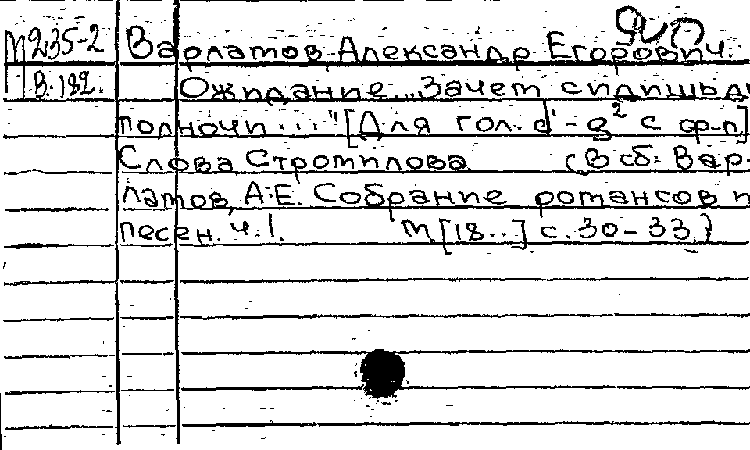 М235-2 Варламов, Александр Егорович.
В.182. Ожидание. „Зачем сидишь до
полночи..." [Для гол. d¹-g² с ф-п]
Слова Стромилова (В сб: Вар-
ламов, А.Е. Собрание романсов и
песен. ч.1. М. [18...] с. 30-33)